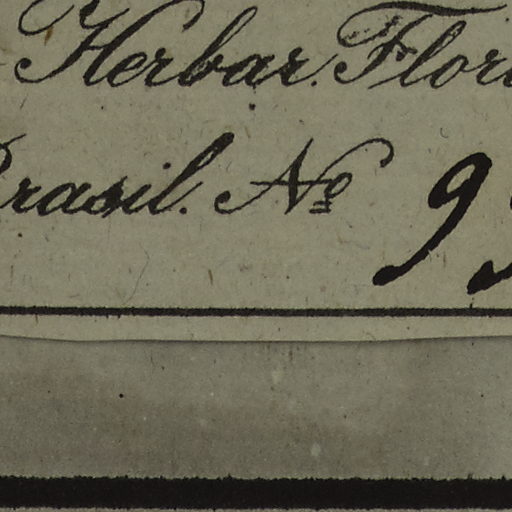 Herbar. Flor
Brasil. No 9